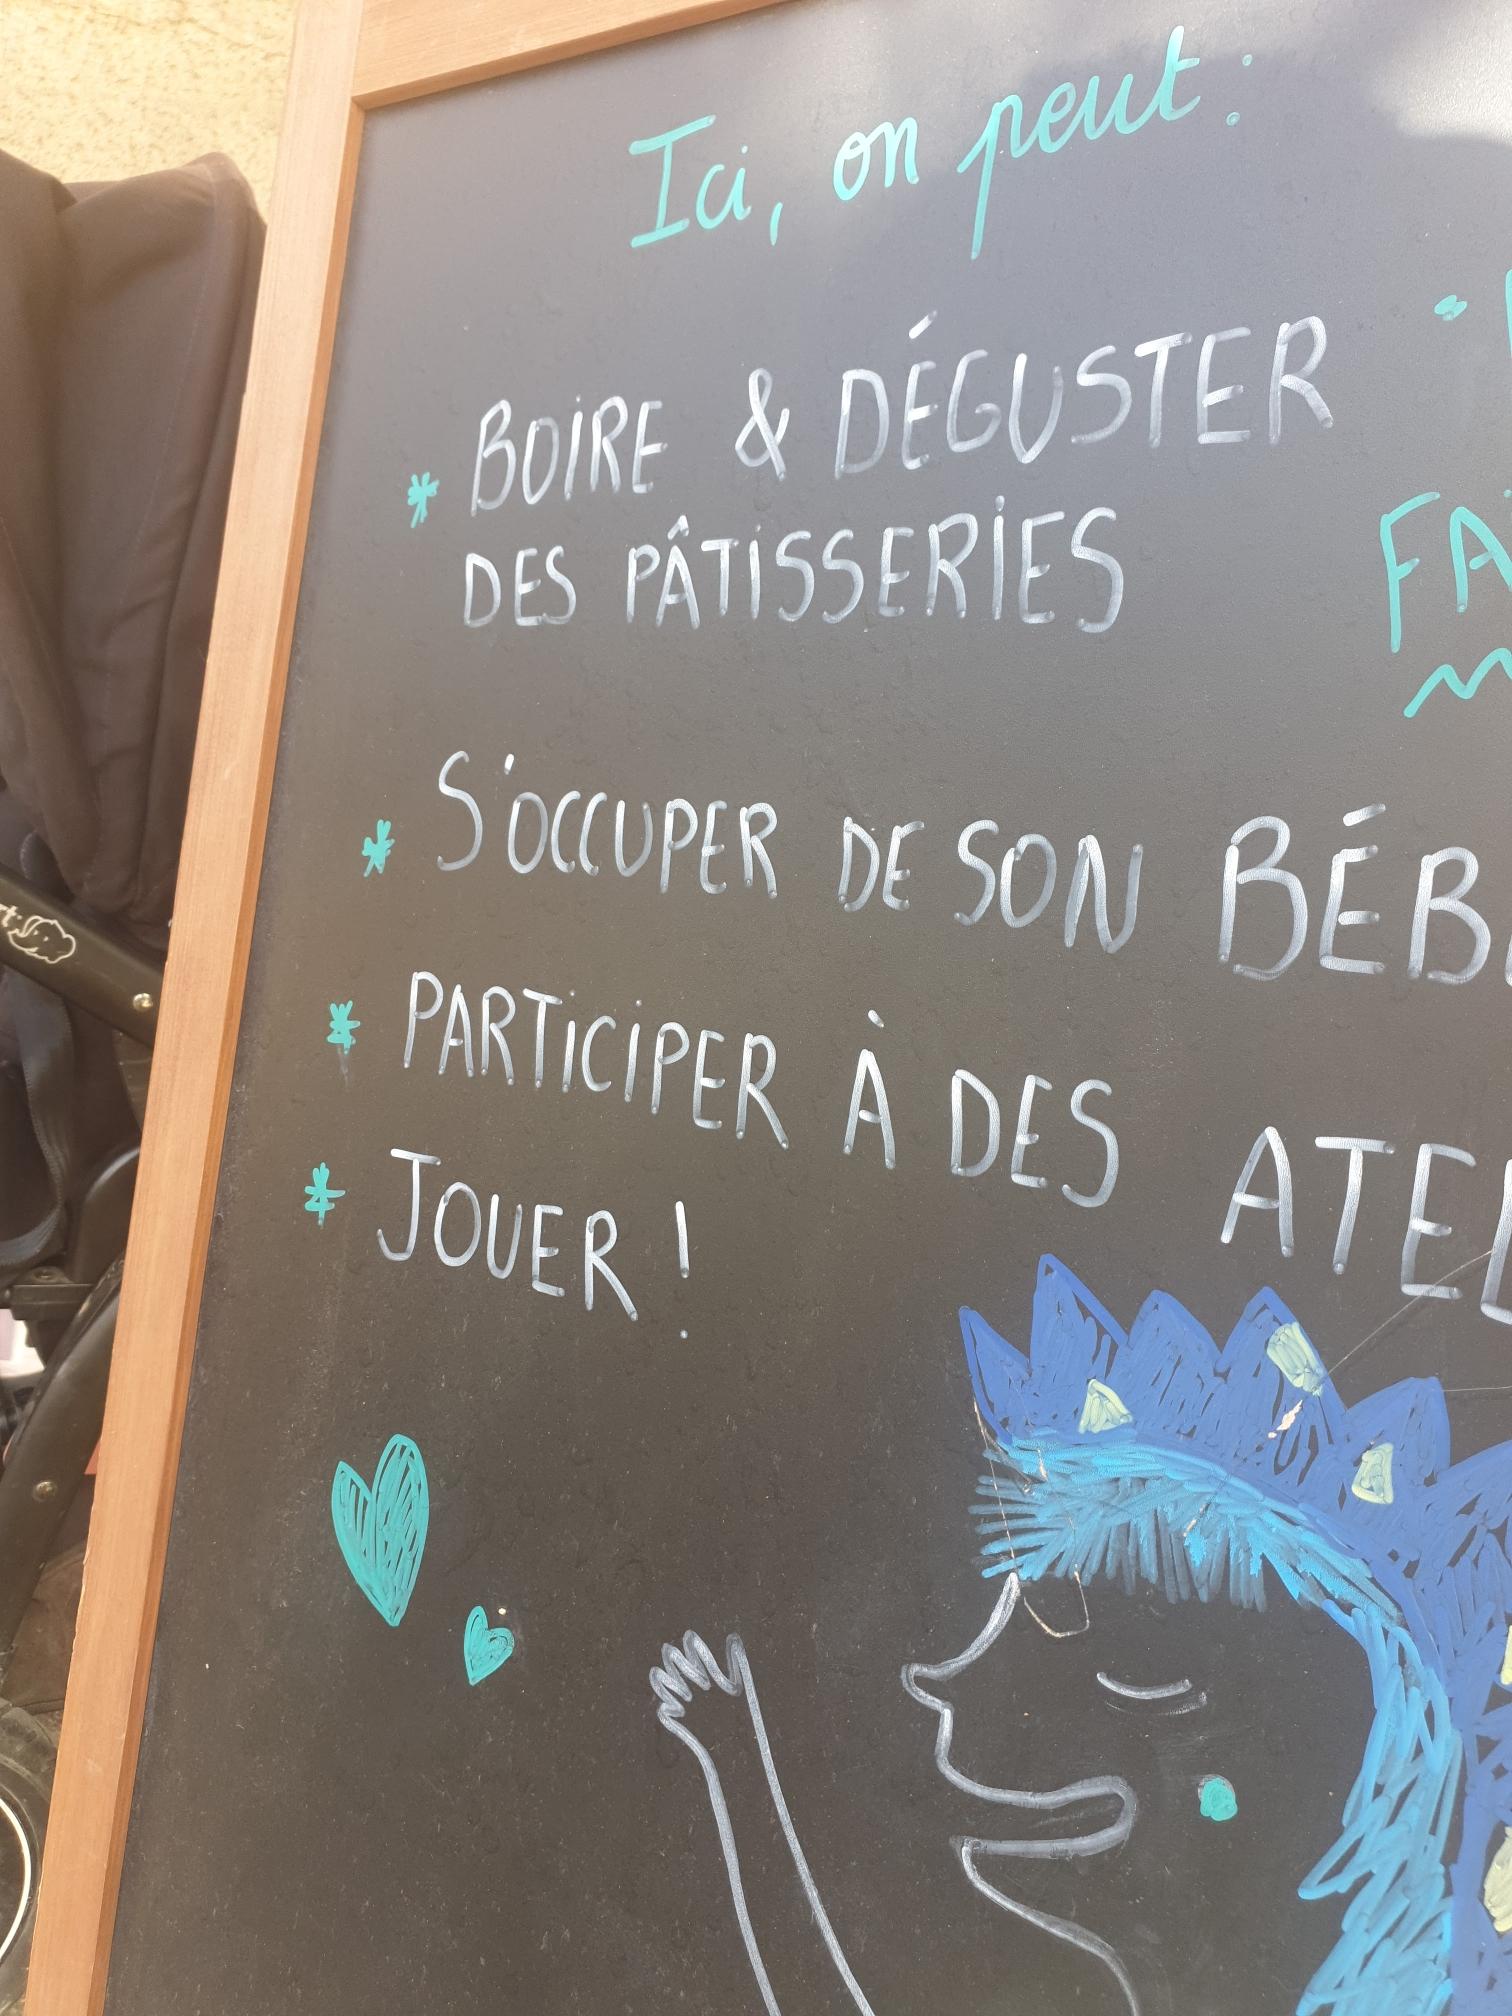 Ici, on peut :
* BOIRE & DÉGUSTER
DES PÂTISSERIES
* S'OCCUPER DE SON
* PARTICIPER À DES
* JOUER !